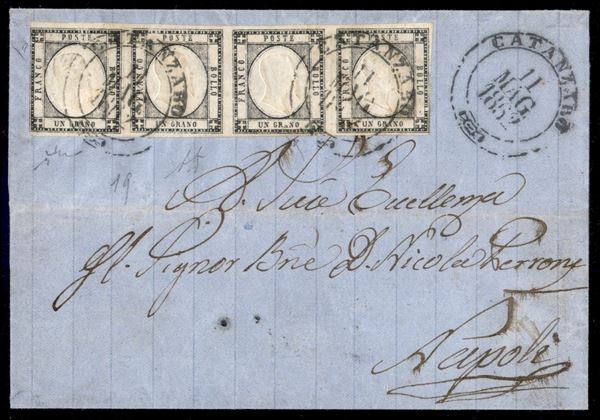 POSTE POSTE POSTE POSTE
FRANCO BOLLO FRANCO BOLLO FRANCO BOLLO FRANCO BOLLO
UN GRANO UN GRANO UN GRANO UN GRANO
CATANZARO
CATANZARO
CATANZARO
11
MAG
19
A. Sua Eccellenza
Il Signor Bne D. Nicola Ferrony
Napoli